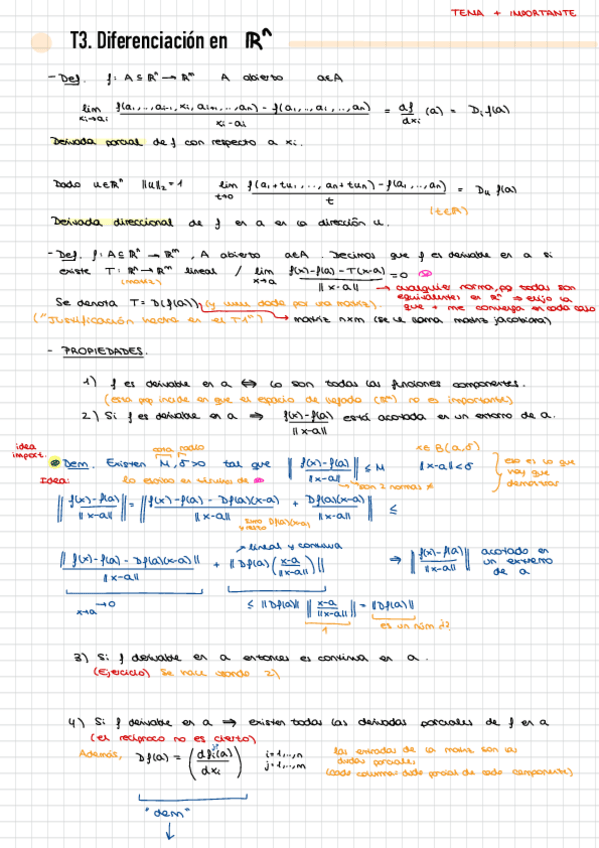 TEMA + IMPORTANTE
T3. Diferenciación en ℝⁿ
- Def. f: A ⊆ ℝⁿ → ℝᵐ A abierto a∈A
lim xᵢ→aᵢ (f(a₁,...,aᵢ₋₁, xᵢ, aᵢ₊₁,...,aₙ) - f(a₁,...,aᵢ,...,aₙ)) / (xᵢ-aᵢ) = df/dxᵢ (a) = Dᵢ f(a)
Derivada parcial de f con respecto a xᵢ.
Dado u∈ℝⁿ ‖u‖₂=1 lim t→0 (f(a₁+tu₁,..., aₙ+tuₙ) - f(a₁,...,aₙ)) / t = Dᵤ f(a)
(t∈ℝ)
Derivada direccional de f en a en la dirección u.
- Def. f: A⊆ℝⁿ → ℝᵐ, A abierto a∈A. Decimos que f es derivable en a si
existe T: ℝⁿ→ℝᵐ lineal / lim x→a (f(x)-f(a)-T(x-a)) / ‖x-a‖ = 0
(matriz)
→ cualquier norma, pq todas son
equivalentes en ℝⁿ ⇒ elijo la
que + me convenga en cada caso
Se denota T = D(f(a)) (y viene dada por una matriz).
("Justificación hecha en el T1") → matriz n×m (se le llama matriz jacobiana)
- PROPIEDADES.
1) f es derivable en a ⇔ lo son todas las funciones componentes.
(esta prop incide en que el espacio de llegada (ℝᵐ) no es importante)
2) Si f es derivable en a ⇒ (f(x)-f(a)) / ‖x-a‖ está acotada en un entorno de a.
idea import.
cota radio
x∈B(a,δ)
Dem. Existen M, δ>0 tal que ‖(f(x)-f(a)) / ‖x-a‖‖ ≤ M ‖x-a‖<δ
eso es lo que
hay que
demostrar
Idea:
son 2 normas ≠
‖(f(x)-f(a)) / ‖x-a‖‖ = ‖(f(x)-f(a)-Df(a)(x-a)) / ‖x-a‖ + Df(a)(x-a) / ‖x-a‖‖ ≤
sumo Df(a)(x-a)
y resto
→ lineal y continua
‖f(x)-f(a)-Df(a)(x-a)‖ / ‖x-a‖ + ‖Df(a)((x-a) / ‖x-a‖)‖ ⇒ ‖(f(x)-f(a)) / ‖x-a‖‖ acotado en
un entorno
de a
x→a → 0
≤ ‖Df(a)‖ ‖(x-a) / ‖x-a‖‖ = ‖Df(a)‖
1
es un núm.
3) Si f derivable en a entonces es continua en a.
(Ejercicio) Se hace usando 2)
4) Si f derivable en a ⇒ existen todas las derivadas parciales de f en a
(el recíproco no es cierto)
Además, Df(a) = (dfⱼ(a) / dxᵢ) i=1,...,n
j=1,...,m
las entradas de la matriz son las
dvdas parciales
(cada columna dvda parcial de cada componente)
"dem"